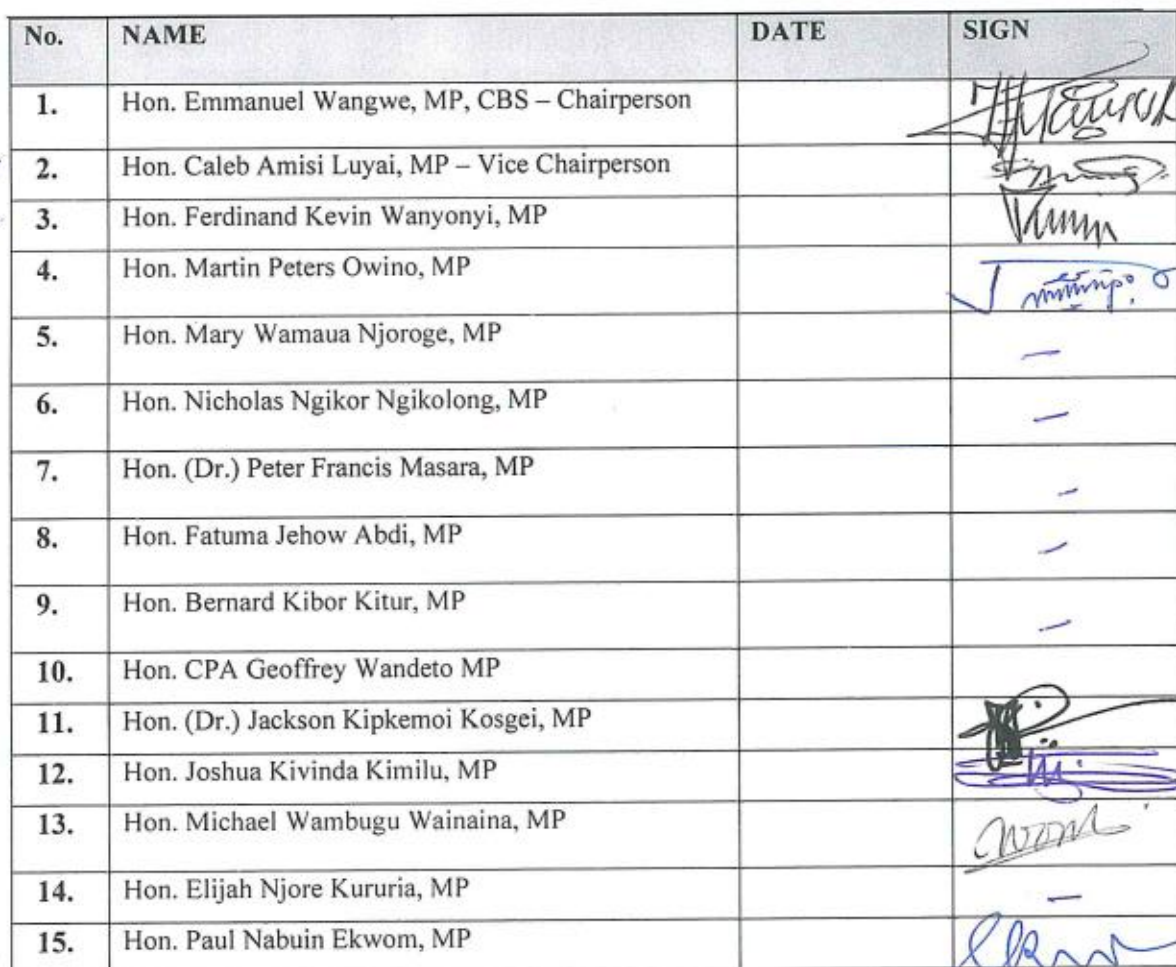 No. NAME DATE SIGN
1. Hon. Emmanuel Wangwe, MP, CBS – Chairperson
2. Hon. Caleb Amisi Luyai, MP – Vice Chairperson
3. Hon. Ferdinand Kevin Wanyonyi, MP
4. Hon. Martin Peters Owino, MP
5. Hon. Mary Wamaua Njoroge, MP –
6. Hon. Nicholas Ngikor Ngikolong, MP –
7. Hon. (Dr.) Peter Francis Masara, MP –
8. Hon. Fatuma Jehow Abdi, MP –
9. Hon. Bernard Kibor Kitur, MP –
10. Hon. CPA Geoffrey Wandeto MP
11. Hon. (Dr.) Jackson Kipkemoi Kosgei, MP
12. Hon. Joshua Kivinda Kimilu, MP
13. Hon. Michael Wambugu Wainaina, MP
14. Hon. Elijah Njore Kururia, MP –
15. Hon. Paul Nabuin Ekwom, MP